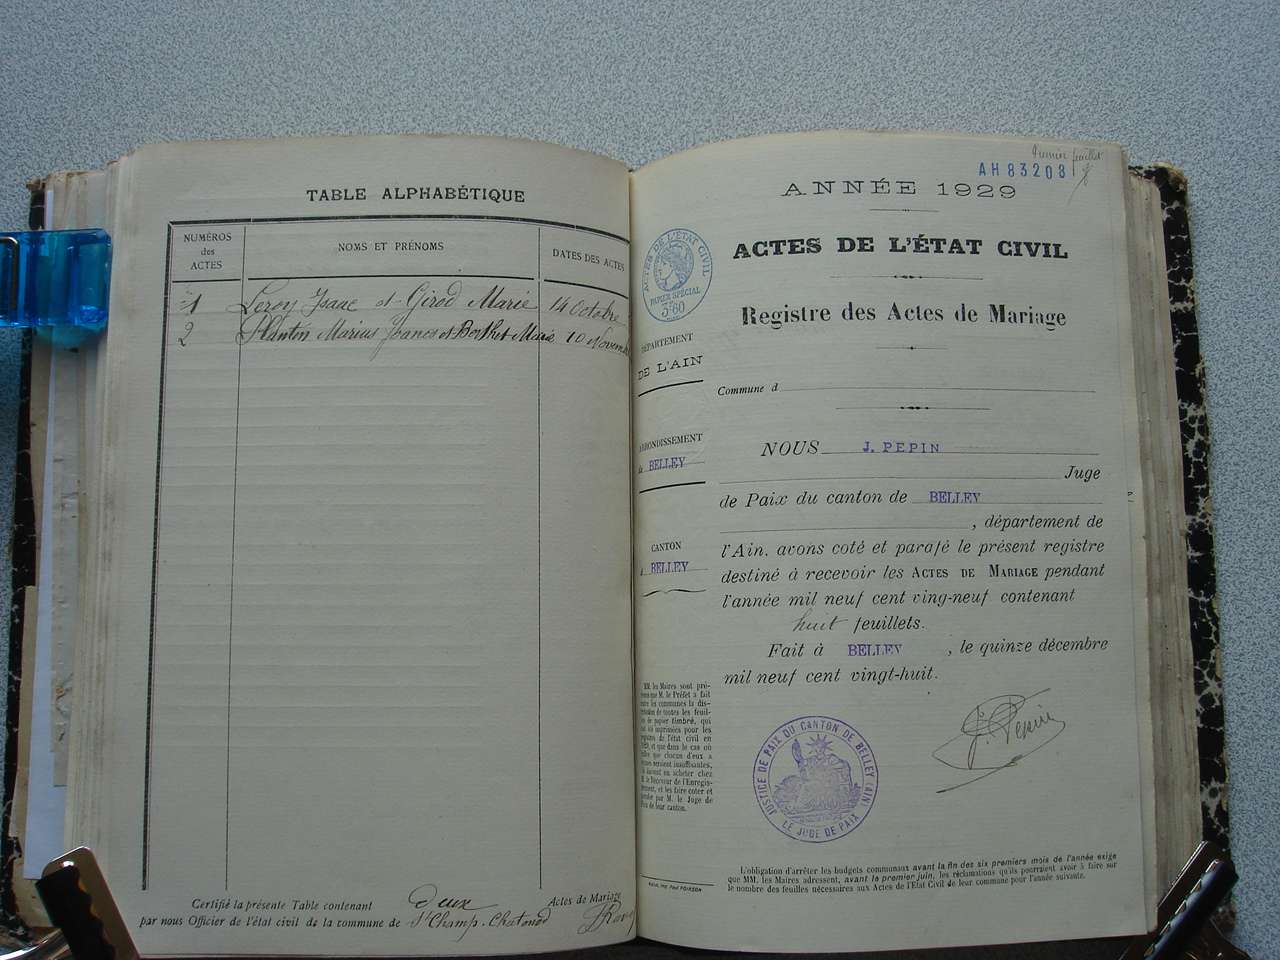 TABLE ALPHABÉTIQUE
NUMÉROS des ACTES
NOMS ET PRÉNOMS
DATES DES ACTES
1 Leroy Isaac et Girod Marie 14 Octobre
2 Planton Marius Francs et Berthet Marie 10 Novem
Certifié la présente Table contenant deux Actes de Mariage
par nous Officier de l'état civil de la commune de St Champ-Chatonod
Premier feuillet
AH 83208
ANNÉE 1929
ACTES DE L'ÉTAT CIVIL
PAPIER SPÉCIAL
3F60
ACTES DE L'ÉTAT CIVIL
Registre des Actes de Mariage
DÉPARTEMENT
DE L'AIN
Commune d
ARRONDISSEMENT
de BELLEY
NOUS J. PEPIN
Juge
de Paix du canton de BELLEY
, département de
CANTON
d BELLEY
l'Ain, avons coté et parafé le présent registre
destiné à recevoir les ACTES DE MARIAGE pendant
l'année mil neuf cent ving-neuf contenant
huit feuillets.
Fait à BELLEY, le quinze décembre
mil neuf cent vingt-huit.
MM. les Maires sont pré-
venus que M. le Préfet a fait
entre les communes la dis-
tribution de toutes les feuil-
les de papier timbré, qui
ont été imprimées pour les
registres de l'état civil en
1929, et que dans le cas où
celles que chacun d'eux a
reçues seraient insuffisantes,
ils doivent en acheter chez
M. le Receveur de l'Enregis-
trement, et les faire coter et
parafer par M. le Juge de
Paix de leur canton.
J. Pepin
JUSTICE DE PAIX DU CANTON DE BELLEY (AIN)
LE JUGE DE PAIX
L'obligation d'arrêter les budgets communaux avant la fin des six premiers mois de l'année exige
que MM. les Maires adressent, avant le premier juin, les réclamations qu'ils pourraient avoir à faire sur
le nombre des feuilles nécessaires aux Actes de l'État Civil de leur commune pour l'année suivante.